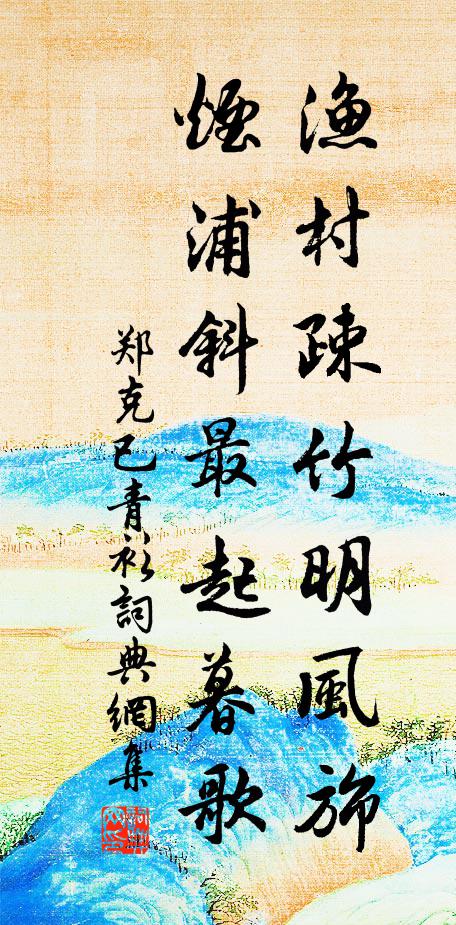 漁村疎竹明風旆
煙浦斜最起暮歌
郑克己青衫詞典網集